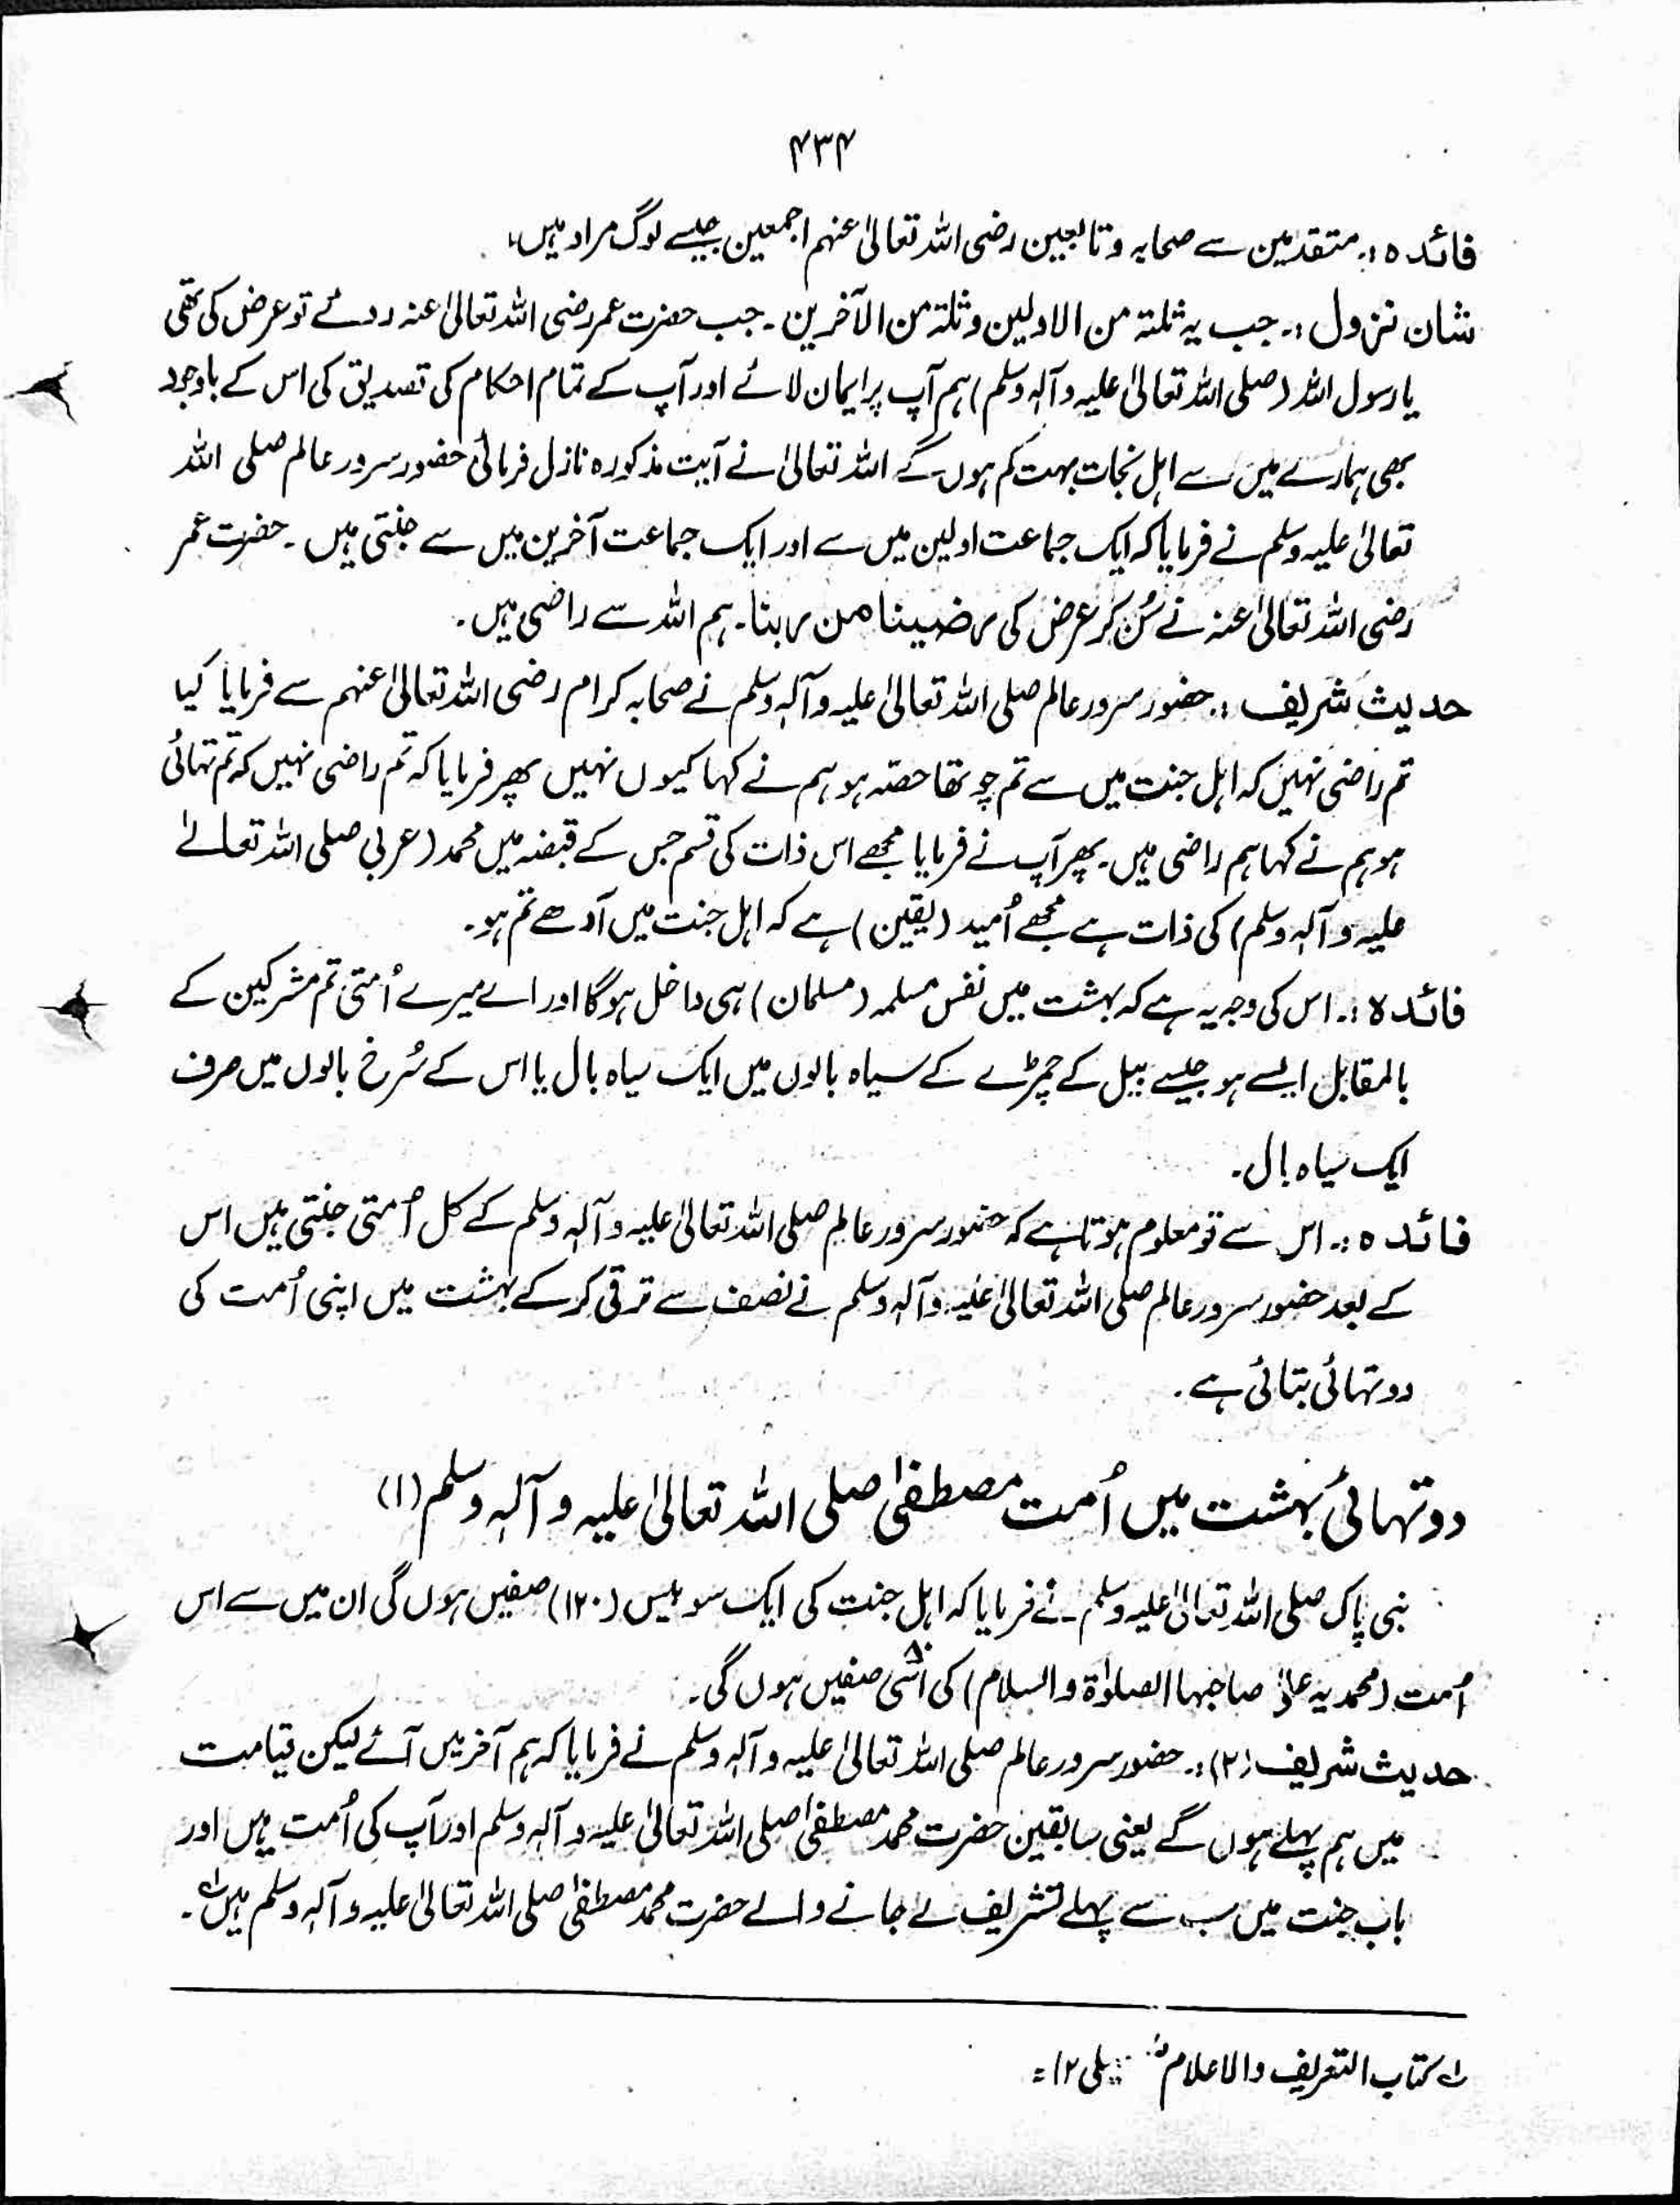 ۴۳۴
فائدہ :۔ متقدمین سے صحابہ و تابعین رضی اللہ تعالیٰ عنہم اجمعین جیسے لوگ مراد ہیں،
شان نزول :۔ جب یہ ثلتہ من الاولین وثلتہ من الآخرین ۔ جب حضرت عمر رضی اللہ تعالیٰ عنہ روئے تو عرض کی تھی
یا رسول اللہ (صلی اللہ تعالیٰ علیہ وآلہ وسلم) ہم آپ پر ایمان لائے اور آپ کے تمام احکام کی تصدیق کی اس کے باوجود
بھی ہمارے میں سے اہل نجات بہت کم ہوں گے اللہ تعالیٰ نے آیت مذکورہ نازل فرمائی حضور سرور عالم صلی اللہ
تعالیٰ علیہ وسلم نے فرمایا کہ ایک جماعت اولین میں سے اور ایک جماعت آخرین میں سے جنتی ہیں ۔ حضرت عمر
رضی اللہ تعالیٰ عنہ نے سُن کر عرض کی رضینا من ربنا ۔ ہم اللہ سے راضی ہیں ۔
حدیث شریف :۔ حضور سرور عالم صلی اللہ تعالیٰ علیہ وآلہ وسلم نے صحابہ کرام رضی اللہ تعالیٰ عنہم سے فرمایا کیا
تم راضی نہیں کہ اہل جنت میں سے تم چوتھا حصّہ ہو ہم نے کہا کیوں نہیں پھر فرمایا کہ تم راضی نہیں کہ تم تہائی
ہو ہم نے کہا ہم راضی ہیں ۔ پھر آپ نے فرمایا مجھے اس ذات کی قسم جس کے قبضہ میں محمد (عربی صلی اللہ تعالےٰ
علیہ وآلہ وسلم) کی ذات ہے مجھے اُمید (یقین) ہے کہ اہل جنت میں آدھے تم ہو ۔
فائدہ :۔ اس کی وجہ یہ ہے کہ بہشت میں نفس مسلمہ (مسلمان) ہی داخل ہوگا اور اے میرے اُمتی تم مشرکین کے
بالمقابل ایسے ہو جیسے بیل کے چمڑے کے سیاہ بالوں میں ایک سیاہ بال یا اس کے سُرخ بالوں میں صرف
ایک سیاہ بال ۔
فائدہ :۔ اس سے تو معلوم ہوتا ہے کہ حضور سرور عالم صلی اللہ تعالیٰ علیہ وآلہ وسلم کے کل اُمتی جنتی ہیں اس
کے بعد حضور سرور عالم صلی اللہ تعالیٰ علیہ وآلہ وسلم نے نصف سے ترقی کر کے بہشت میں اپنی اُمت کی
دو تہائی بتائی ہے ۔
دو تہائی بہشت میں اُمت مصطفیٰ صلی اللہ تعالیٰ علیہ وآلہ وسلم (۱)
نبی پاک صلی اللہ تعالیٰ علیہ وسلم نے فرمایا کہ اہل جنت کی ایک سو بیس (۱۲۰) صفیں ہوں گی ان میں سے اس
اُمت (محمدیہ علیٰ صاحبہا الصلوٰۃ والسلام) کی اسّی ۸۰ صفیں ہوں گی ۔
حدیث شریف (۲) :۔ حضور سرور عالم صلی اللہ تعالیٰ علیہ وآلہ وسلم نے فرمایا کہ ہم آخر میں آئے لیکن قیامت
میں ہم پہلے ہوں گے یعنی سابقین حضرت محمد مصطفیٰ صلی اللہ تعالیٰ علیہ وآلہ وسلم اور آپ کی اُمت ہیں اور
باب جنت میں سب سے پہلے تشریف لے جانے والے حضرت محمد مصطفیٰ صلی اللہ تعالیٰ علیہ وآلہ وسلم ہیں ۔
کتاب التعریف والاعلام ۱۲ =